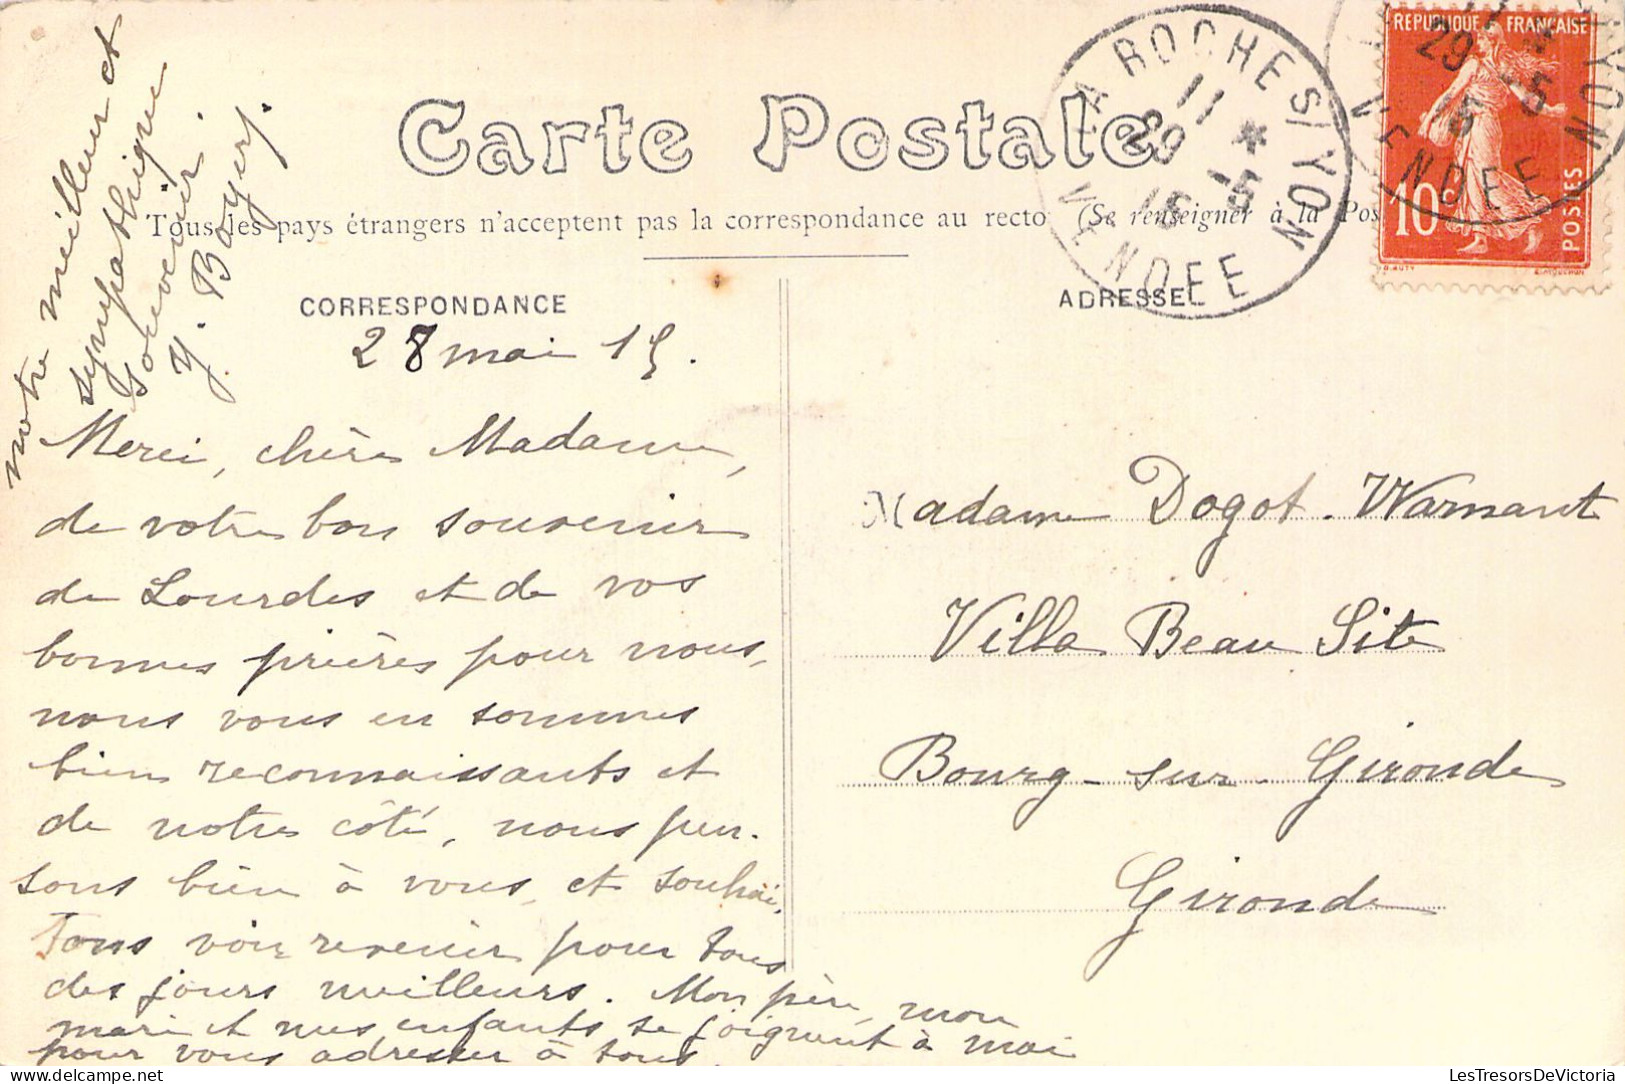 Carte Postale
Tous les pays étrangers n'acceptent pas la correspondance au recto (Se renseigner à la Pos
CORRESPONDANCE
ADRESSE
28 mai 15.
Merci, chère Madame,
de votre bon souvenir
de Lourdes et de vos
bonnes prières pour nous,
nous vous en sommes
bien reconnaissants et
de notre côté, nous pen-
sons bien à vous, et souhai-
tons voir revenir pour tous
des jours meilleurs. Mon père, mon
mari et mes enfants se joignent à moi
pour vous adresser à tous,
notre meilleur et
sympathique
souvenir.
Y. Boyer.
Madame Dogot. Warnant
Villa Beau Site
Bourg-sur-Gironde
Gironde
LA ROCHE S/YON
11 *
29 -5
15
VENDEE
REPUBLIQUE FRANÇAISE
10c
POSTES
11
29 -5
15
YON
VENDEE
LesTresorsDeVictoria